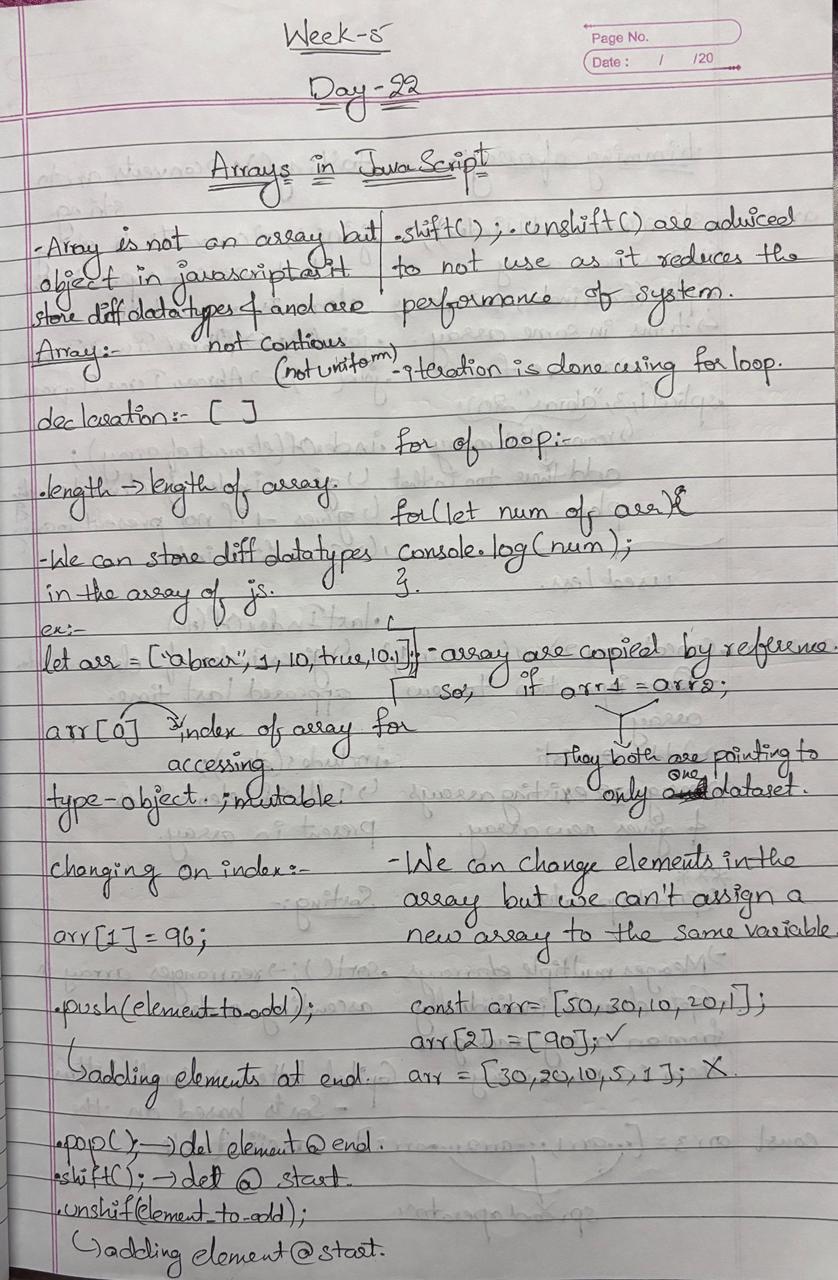 Week-5
Page No.
Date : / /20
Day-22
Arrays in JavaScript
-Array is not an array but
object in javascript as it
store diff datatypes & and are
not contious
(not uniform)
Array:-
declaration:- [ ]
.length → length of array.
-We can store diff datatypes
in the array of js.
ex:-
let arr = ["abrar", 1, 10, true, 10.1];
arr[0] index of array for
accessing
type-object. ; mutable.
changing on index:-
arr[1] = 96;
.push(element_to_add);
↳ adding elements at end.
.pop(); → del element @ end.
.shift(); → del @ start.
.unshif(element_to_add);
↳ adding element @ start.
.shift(); .unshift() are adviced
to not use as it reduces the
performance of system.
-iteration is done using for loop.
for of loop:-
for(let num of arr){
console.log(num);
}.
-array are copied by reference.
so, if of arr1 = arr2;
They both are pointing to
only one dataset.
-We can change elements in the
array but we can't assign a
new array to the same variable
const arr= [50,30,10,20,1];
arr[2] = [90]; ✓
arr = [30,20,10,5,1]; X